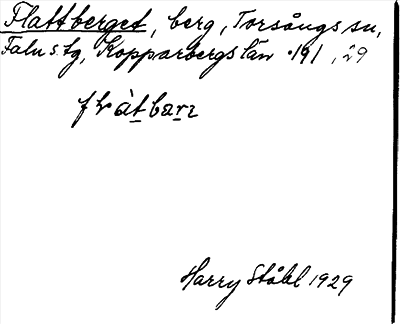 Flattberget, berg, Torsångs sn,
Falu s. tg, Kopparbergs län
Harry Ståhl 1929